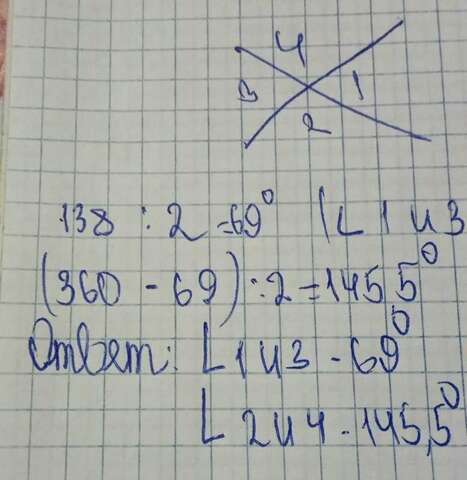 4
3 1
2
138 : 2 = 69° (L 1 и 3
(360 - 69) : 2 = 145 5°
Ответ: L 1 и 3 - 69°
L 2 и 4 - 145,5°